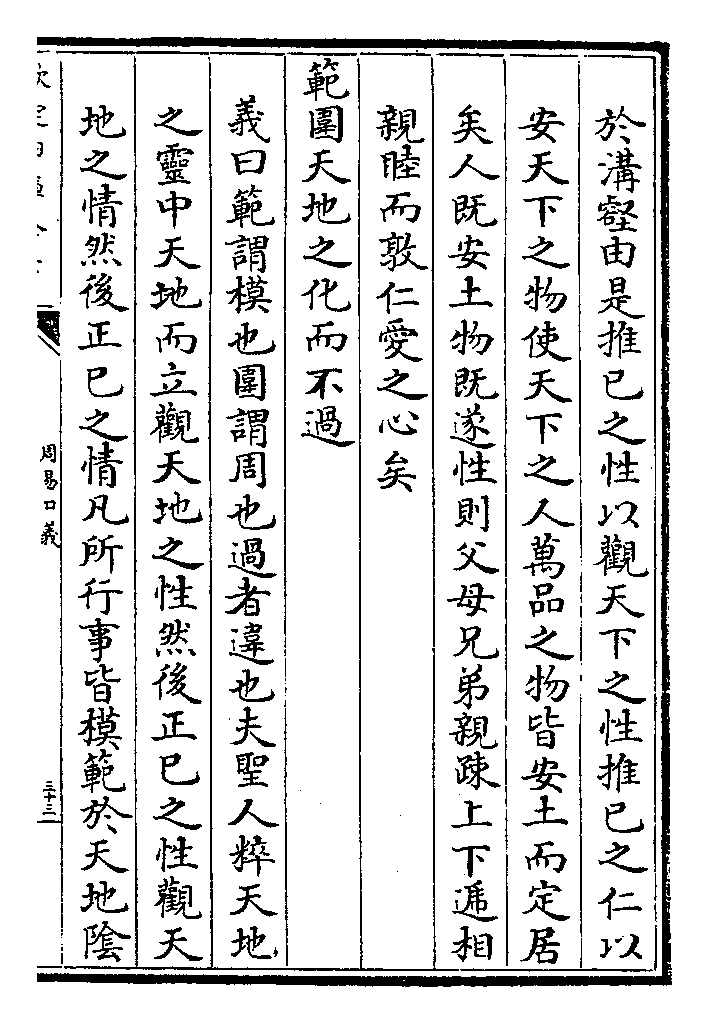 於溝壑由是推已之性以觀天下之性推已之仁以
安天下之物使天下之人萬品之物皆安土而定居
矣人既安土物既遂性則父母兄弟親疎上下遞相
親睦而敦仁愛之心矣
範圍天地之化而不過
義曰範謂模也圍謂周也過者違也夫聖人粹天地
之靈中天地而立觀天地之性然後正已之性觀天
地之情然後正已之情凡所行事皆模範於天地陰
周易口義
三十三